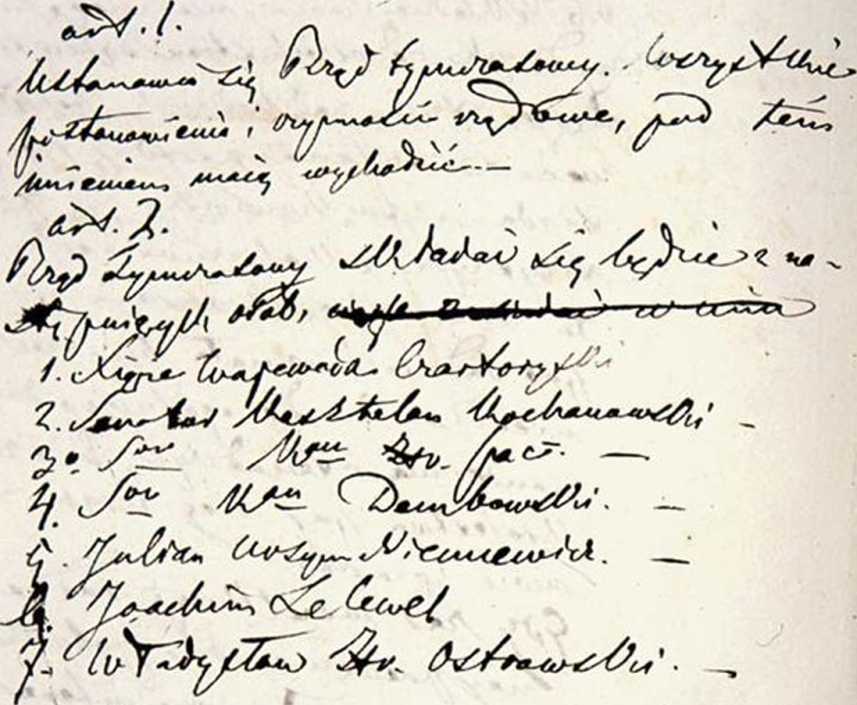 art. 1.
Ustanawia się Rząd tymczasowy. Wszystkie
postanowienia i czynności rządowe, pod tém
imieniem maią wychodzić. —
art. 2.
Rząd tymczasowy składać się będzie z na-
stępuiących osób,
1. Xięcia Wojewody Czartoryski
2. Senator Kasztelan Kochanowski —
3. Sor Kan Hr. Pac. —
4. Sor Kan Dembowski. —
5. Julian Ursyn Niemcewicz. —
6. Joachim Lelewel
7. Władysław Hr. Ostrowski. —